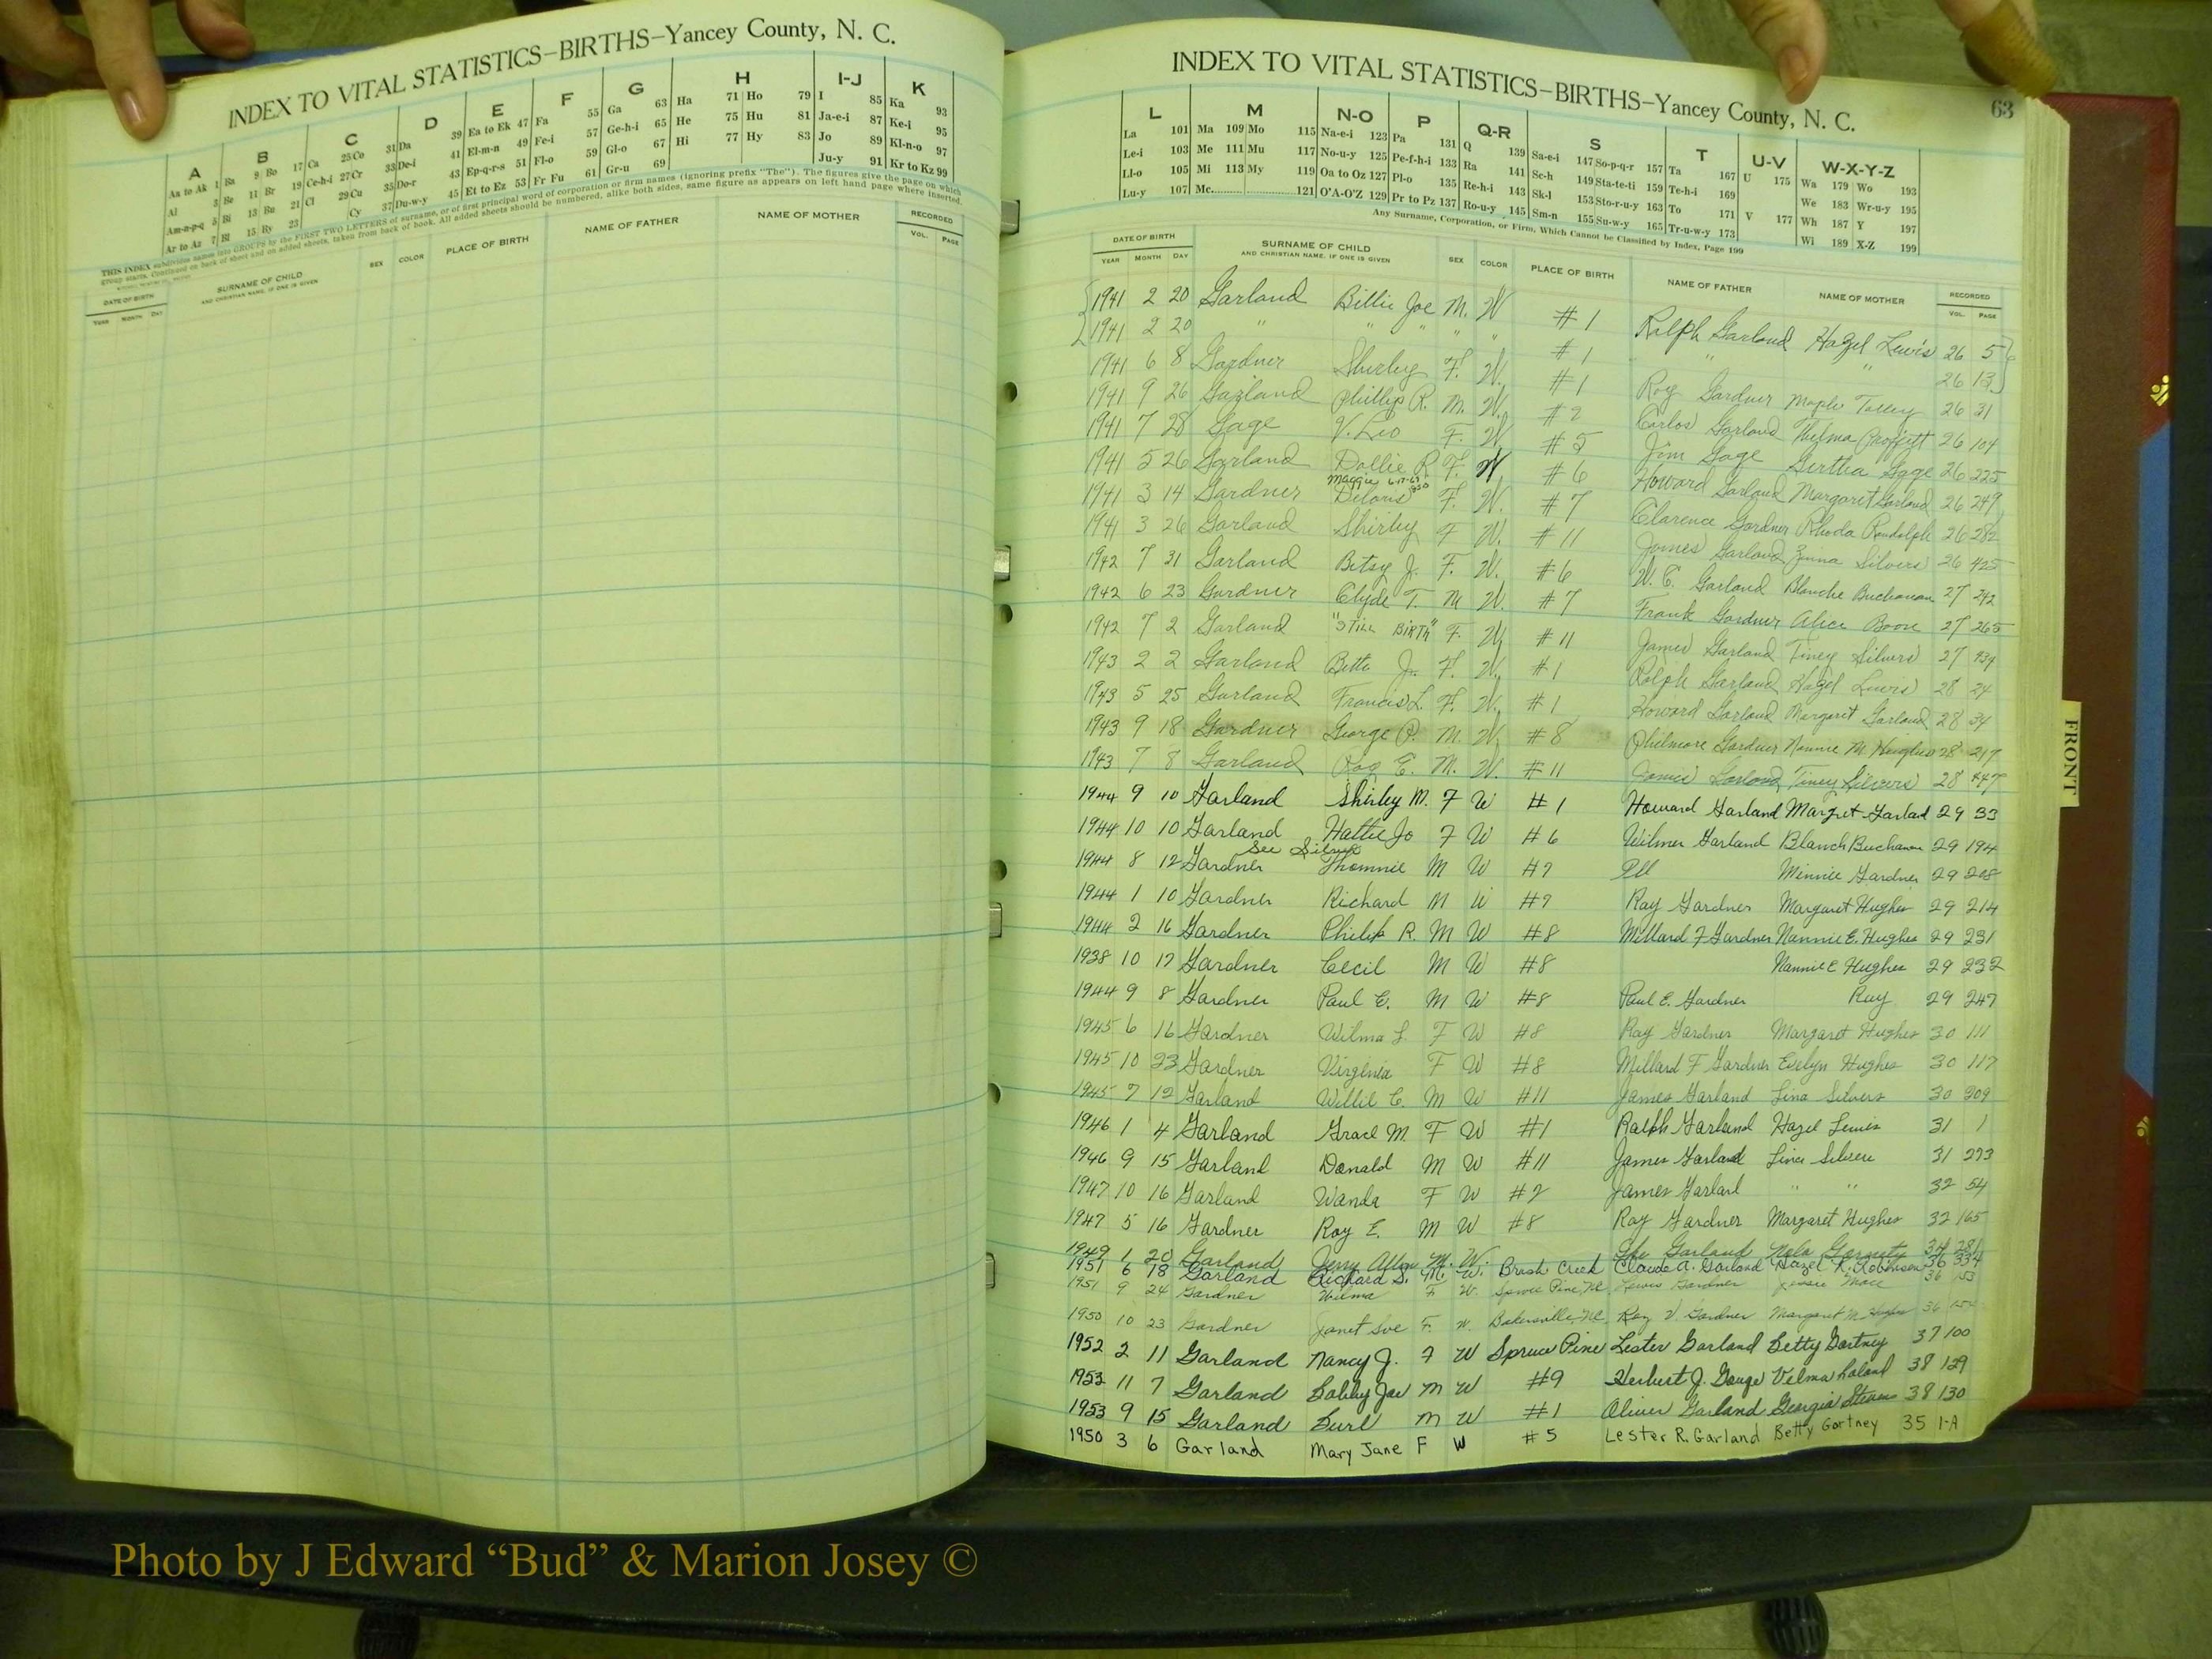 INDEX TO VITAL STATISTICS–BIRTHS–Yancey County, N. C.
A B C D E F G H I-J K
Aa to Ak 1 Ba 9 Bo 17 Ca 25 Co 31 Da 39 Ea to Ek 47 Fa 55 Ga 63 Ha 71 Ho 79 I 85 Ka 93
Al 3 Be 11 Br 19 Ce-h-i 27 Cr 33 De-i 41 El-m-n 49 Fe-i 57 Ge-h-i 65 He 75 Hu 81 Ja-e-i 87 Ke-i 95
Am-n-p-q 5 Bi 13 Bu 21 Cl 29 Cu 35 Do-r 43 Ep-q-r-s 51 Fl-o 59 Gl-o 67 Hi 77 Hy 83 Jo 89 Kl-n-o 97
Ar to Az 7 Bl 15 By 23 Cy 37 Du-w-y 45 Et to Ez 53 Fr Fu 61 Gr-u 69 Ju-y 91 Kr to Kz 99
THIS INDEX subdivides names into GROUPS by the FIRST TWO LETTERS of surname, or of first principal word of corporation or firm names (ignoring prefix "The"). The figures give the page on which
group starts. Continued on back of sheet and on added sheets, taken from back of book. All added sheets should be numbered, alike both sides, same figure as appears on left hand page where inserted.
DATE OF BIRTH SURNAME OF CHILD SEX COLOR PLACE OF BIRTH NAME OF FATHER NAME OF MOTHER RECORDED
YEAR MONTH DAY AND CHRISTIAN NAME, IF ONE IS GIVEN VOL. PAGE
INDEX TO VITAL STATISTICS–BIRTHS–Yancey County, N. C. 63
L M N-O P Q-R S T U-V W-X-Y-Z
La 101 Ma 109 Mo 115 Na-e-i 123 Pa 131 Q 139 Sa-e-i 147 So-p-q-r 157 Ta 167 U 175 Wa 179 Wo 193
Le-i 103 Me 111 Mu 117 No-u-y 125 Pe-f-h-i 133 Ra 141 Sc-h 149 Sta-te-ti 159 Te-h-i 169 We 183 Wr-u-y 195
Ll-o 105 Mi 113 My 119 Oa to Oz 127 Pl-o 135 Re-h-i 143 Sk-l 153 Sto-r-u-y 163 To 171 V 177 Wh 187 Y 197
Lu-y 107 Mc 121 O'A-O'Z 129 Pr to Pz 137 Ro-u-y 145 Sm-n 155 Su-w-y 165 Tr-u-w-y 173 Wi 189 X-Z 199
Any Surname, Corporation, or Firm, Which Cannot be Classified by Index, Page 199
DATE OF BIRTH SURNAME OF CHILD SEX COLOR PLACE OF BIRTH NAME OF FATHER NAME OF MOTHER RECORDED
YEAR MONTH DAY AND CHRISTIAN NAME, IF ONE IS GIVEN VOL. PAGE
1941 2 20 Garland Billie Joe M. W #1 Ralph Garland Hazel Lewis 26 5
1941 2 20 " " " " " #1 " " 26 13
1941 6 8 Gardner Shirley F. W. #1 Roy Gardner 26 31
1941 9 26 Garland Phillip R. M. W. #2 Carlos Garland Thelma Proffitt 26 104
1941 7 28 Gage V. Leo F. W #5 Jim Gage Bertha Gage 26 225
1941 5 26 Garland Dollie R. F. W #6 Howard Garland Margaret Garland 26 249
1941 3 14 Gardner Deloris F. W. #7 Clarence Gardner Rhoda Randolph 26 282
1941 3 26 Garland Shirley F W. #11 James Garland Silvers 26 425
1942 7 31 Garland Betsy J. F. W. #6 W. C. Garland Blanche Buchanan 27 242
1942 6 23 Gardner Clyde T. M W. #7 Frank Gardner Alice Boone 27 265
1942 7 2 Garland "Still Birth" F. W #11 James Garland Tiney Silvers 27
1943 2 2 Garland Bette J. F. W. #1 Ralph Garland Hazel Lewis 28 24
1943 5 25 Garland Francis L. F. W. #1 Howard Garland Margaret Garland 28 34
1943 9 18 Gardner George P. M. W. #8 Philmore Gardner Nannie M. Hughes 28 217
1943 7 8 Garland Roy E. M. W. #11 James Garland Tiney Silvers 28 447
1944 9 10 Garland Shirley M. F W #1 Howard Garland Margret Garland 29 33
1944 10 10 Garland Hattie Jo F W #6 Wilmer Garland Blanch Buchanan 29 194
See
1944 8 12 Gardner Thommie M W #7 Minnie Gardner 29 208
1944 1 10 Gardner Richard M W #7 Ray Gardner Margaret Hughes 29 214
1944 2 16 Gardner Philip R. M W #8 Millard F Gardner Nannie E. Hughes 29 231
1938 10 17 Gardner Cecil M W #8 Nannie E Hughes 29 232
1944 9 8 Gardner Paul E. M W #8 Paul E. Gardner Ray 29 247
1945 6 16 Gardner Wilma L. F W #8 Ray Gardner Margaret Hughes 30 111
1945 10 23 Gardner Virginia F W #8 Millard F Gardner Evelyn Hughes 30 117
1945 7 12 Garland Willie C. M W #11 James Garland Tina Silvers 30 209
1946 1 4 Garland Grace M. F W #1 Ralph Garland Hazel Lewis 31 1
1946 9 15 Garland Donald M W #11 James Garland 31 273
1947 10 16 Garland Wanda F W #2 James Garland " " 32 54
1947 5 16 Gardner Roy E. M W #8 Ray Gardner Margaret Hughes 32 165
1949 1 20 Garland Jerry Allen M. W. Garland Nola 34 281
1951 6 18 Garland Richard S. M. W. Brush Creek Claude A. Garland Hazel R. Robinson 36 334
1951 9 24 Gardner Wilma F W. Spruce Pine, NC Lewis Gardner Jessie Mace 36 153
1950 10 23 Gardner Janet Sue F. W. Bakersville, NC Ray V. Gardner Margaret M. Hughes 36
1952 2 11 Garland Nancy J. F W Spruce Pine Lester Garland Betty Gortney 37 100
1953 11 7 Garland Bobby Joe M W #9 Herbert J. Gouge Velma 38 129
1953 9 15 Garland Burl M W #1 Oliver Garland Georgia 38 130
1950 3 6 Garland Mary Jane F W #5 Lester R. Garland Betty Gortney 35 1-A
FRONT
Photo by J Edward “Bud” & Marion Josey ©